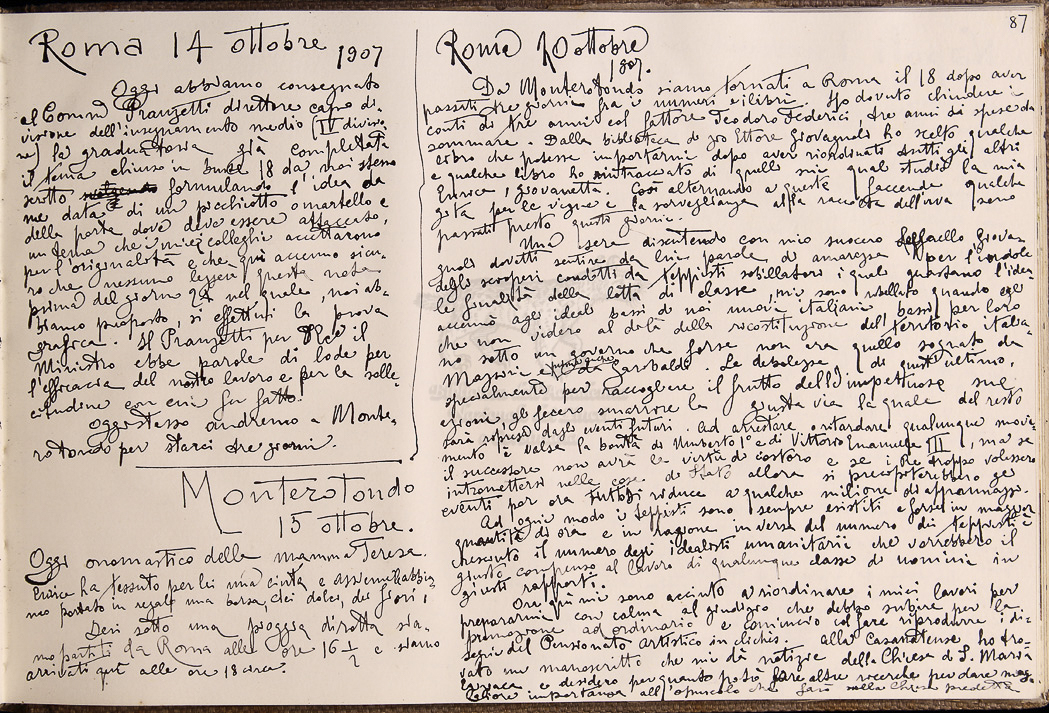 Roma 14 ottobre 1907
Oggi abbiamo consegnato
al Comm Pranzetti direttore capo di-
visione dell'insegnamento medio (IV divisio-
ne) la graduatoria già completata
il tema chiuso in 18 da noi stesso
scritto formulando l'idea da
me data di un picchiotto o martello
della porta dove deve essere attaccato,
un tema che i miei colleghi accettarono
per l'originalità e che qui accenno sicu-
ro che nessuno leggerà questa nota
prima del giorno 24 nel quale, noi ab-
biamo proposto, si effettui la prova
grafica. Il Pranzetti per il
Ministro ebbe parole di lode per
l'efficacia del nostro lavoro e per la solle-
citudine con cui fu fatto.
Oggi stesso andremo a Monte-
rotondo per starci tre giorni.
Monterotondo
15 ottobre.
Oggi onomastico della mamma Teresa.
Enrico ha tessuto per lei una cinta e assieme abbia-
mo portato in regalo una borsa, dei dolci, dei fiori,
Ieri sotto una pioggia dirotta sia-
mo partiti da Roma alle ore 16 1/2 e siamo
arrivati qui alle ore 18 circa.
87
Roma 20 ottobre
1907.
Da Monterotondo siamo tornati a Roma il 18 dopo aver
passati tre giorni fra i numeri e i libri. Ho dovuto chiudere i
conti di tre anni col fattore Teodoro Federici, tre anni di spese da
sommare. Dalla biblioteca di zio Ettore Giovagnoli ho scelto qualche
libro che potesse importarmi dopo aver riordinati tutti gli altri
e qualche libro ho rintracciato di quelli sui quali studiò la mia
Enrica, giovanetta. Così alternando a queste faccende qualche
gita per le vigne e la sorveglianza alla raccolta dell'uva sono
passati presto questi giorni.
Una sera discutendo con mio suocero Raffaello Giova-
gnoli dovetti sentire da lui parole di amarezza per l'indole
degli scioperi condotti da teppisti sobillatori i quali guastano l'idea
le finalità della lotta di classe, mi sono ribellato quando egli
accennò agli ideali bassi di noi nuovi italiani, bassi per loro
che non videro al di là della ricostituzione del territorio italia-
no sotto un governo che forse non era quello sognato da
Mazzini e da Garibaldi. Le debolezze di quest'ultimo,
specialmente per raccogliere il frutto dell' impettuose sue
azioni, gli fecero smarrire la giusta via la quale del resto
sarà ripresa dagli eventi futuri. Ad arrestare o ritardare qualunque movi-
mento è valsa la bontà di Umberto Iº e di Vittorio Emanuele III, ma se
il successore non avrà le virtù di costoro e se i Re troppo volessero
intromettersi nelle cose di Stato allora si precipiterebbero gli
eventi per ora tutto si riduce a qualche milione di appannaggio.
Ad ogni modo i teppisti sono sempre esistiti e forse in maggior
quantità di ora e in ragione inversa del numero dei teppisti è
cresciuto il numero degli idealisti umanitarii che vorrebbero il
giusto compenso al lavoro di qualunque classe di uomini in
giusti rapporti.
Ora qui mi sono accinto a riordinare i miei lavori per
prepararmi con calma al giudizio che debbo subire per la
promozione ad ordinario e comincio col fare riprodurre i di-
segni del Pensionato artistico in clichés. alla Casanatense ho tro-
vato un manoscritto che mi dà notizie della Chiesa di S. Maria
e desidero per quanto potrò fare altre ricerche per dare mag-
giore importanza all'opuscolo che farò sulla Chiesa predetta